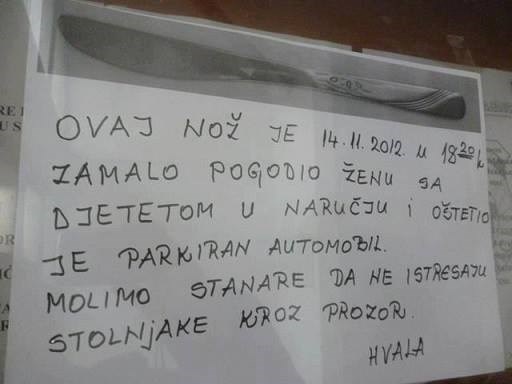 OVAJ NOŽ JE 14.11.2012. u 18²⁰ h
ZAMALO POGODIO ŽENU SA
DJETETOM U NARUČJU i OŠTETIO
JE PARKIRAN AUTOMOBIL.
MOLIMO STANARE DA NE ISTRESAJU
STOLNjAKE KROZ PROZOR.
HVALA